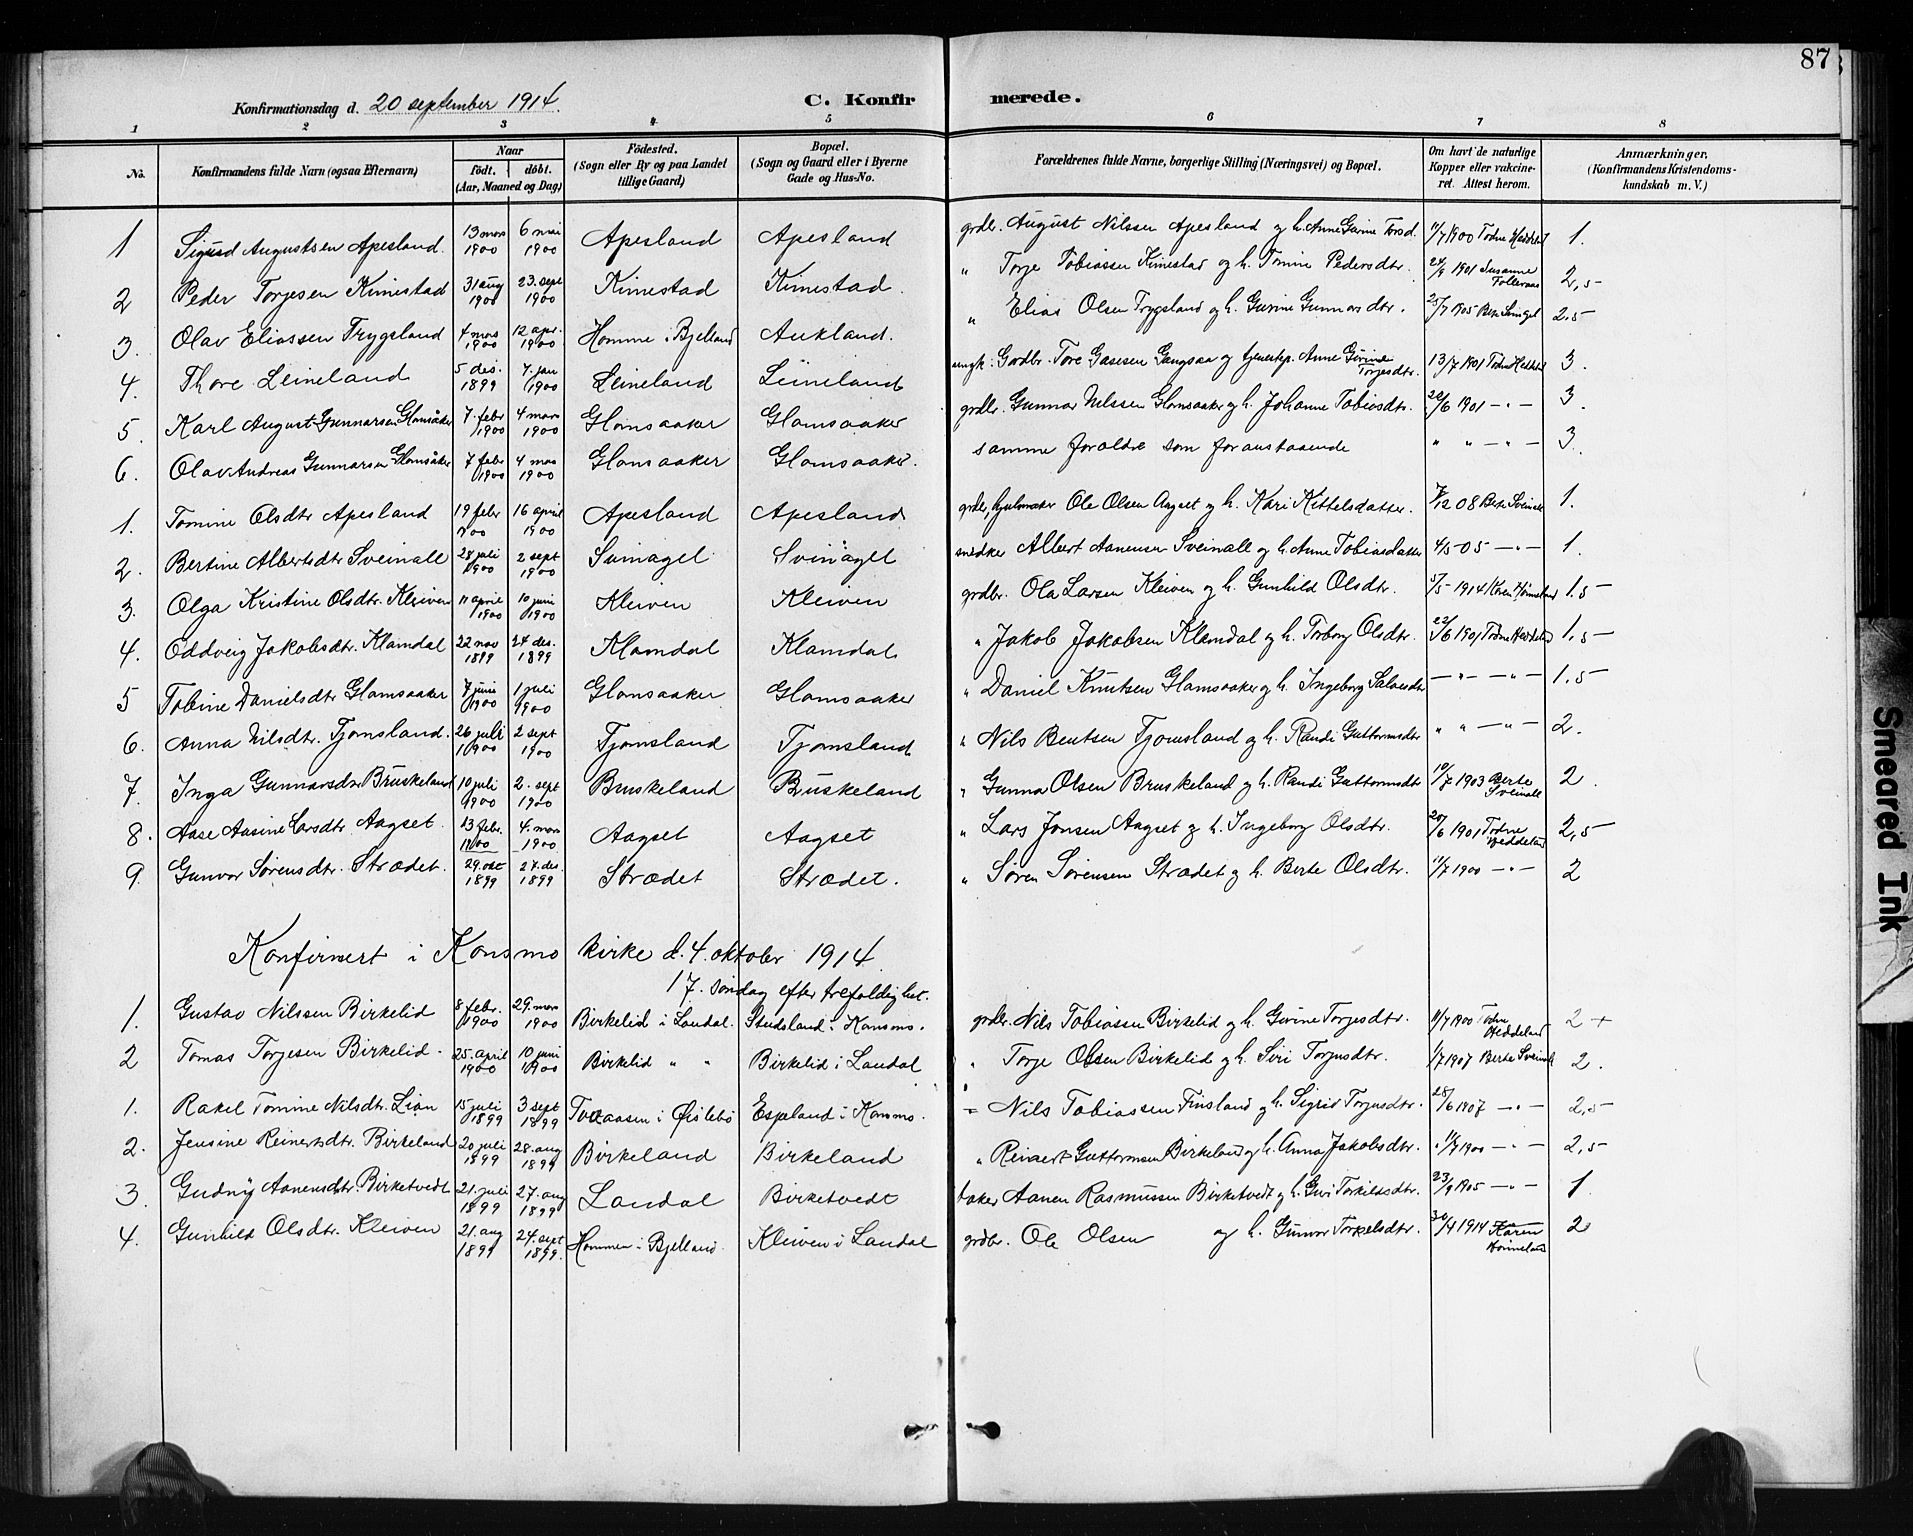 87
Konfirmationsdag d. 20 september 1914.
C. Konfirmerede.
1 2 3 4 5 6 7 8
No. Konfirmandens fulde Navn (ogsaa Efternavn) Naar Født. døbt. (Aar, Maaned og Dag) Fødested. (Sogn eller By og paa Landet tillige Gaard) Bopæl. (Sogn og Gaard eller i Byerne Gade og Hus-No. Forældrenes fulde Navne, borgerlige Stilling (Næringsvei) og Bopæl. Om havt de naturlige Kopper eller vakcineret. Attest herom. Anmærkninger, (Konfirmandens Kristendomskundskab m. V.)
1 Sigurd Augustsen Apesland. 13 mars 1900 6 mai 1900 Apesland Apesland grdbr. August Nilssen Apesland og h. Anne Gurine Torsd. 11/7 1900 Todne Heddeland 1.
2 Peder Torjesen Kimestad 31 aug 1900 23. sept 1900 Kimestad Kimestad. " Torje Tobiassen Kimestad og h. Tomine Pedersdtr. 24/9 1901 Susanne 2,5
3. Olav Eliassen Trygsland 4 mars 1900 12 apr. 1900 Homme i Bjelland Aukland. " Elias Olsen Trygsland og h. Gurine Gunnarsdtr. 25/7 1905 2.5
4. Thore Leineland 5 des. 1899 7. jan 1900 Leineland Leineland ungk: Gardbr. Tore Gasesen Gangsaa og tjenestep. Anne Gurine Torjesdtr. 13/7 1901 Todne Heddeland 3.
5. Karl August Gunnarsen Glomsåker 7. febr 1900 4 mars 1900 Glomsaaker Glomsaaker grdbr. Gunnar Nilssen Glomsaaker og h. Johanne Tobiasdtr. 22/6 1901 - " - 3.
6. Olav Andreas Gunnarsen Glomsåker 7 febr 1900 4 mars 1900 Glomsaaker Glomsaaker. samme foraldre som foranstaaende " " - " - 3.
1. Tomine Olsdtr Apesland 19 febr 1900 16 april 1900 Apesland Apesland grdbr, hjulmaker Ole Olsen Aagset og h. Kari Kittelsdatter. 7/12 08 Berte Sveinall 1.
2. Bertine Albertsdtr Sveinall 28 juli 1900 2 sept 1900 Svinagel Svinagel snedker Albert Aanensen Sveinall og h. Anne Tobiasdatter 4/5 05 - " - 1
3. Olga Kristine Olsdtr. Kleiven 11 april 1900 10 juni 1900 Kleiven Kleiven grdbr. Ola Larsen Kleiven og h. Gunhild Olsdtr. 5/5 - 1914 Karen Homeland 1.5
4. Oddveig Jakobsdtr. Klamdal 22 nov 1899 24 des. 1899 Klamdal Klamdal " Jakob Jakobsen Klamdal og h. Torborg Olsdtr. 22/6 1901 Todne Heddeland 1,5
5 Tobine Danielsdtr Glomsaaker 7 juni 1900 1 juli 1900 Glomsaaker Glomsaaker " Daniel Knutsen Glomsaaker og h. Ingeborg Salvesdtr - " - " - 1.5
6. Anna Nilsdtr. Tjomsland. 26 juli 1900 2 sept 1900 Tjomsland Tjomsland " Nils Bentsen Tjomsland og h. Randi Guttormsdtr " " - " - 2.
7. Inga Gunnarsdtr Bruskeland 10 juli 1900 2. sept 1900 Bruskeland Buskeland " Gunnar Olsen Bruskeland og h. Randi Guttormsdtr 10/7 1903 Berte Sveinall 2.
8. Aase Aasine Larsdtr. Aagset. 13 febr. 1900 4. mars 1900 Aagset Aagset " Lars Jonsen Aagset og h. Ingeborg Olsdtr. 20/6 1901 Todne Heddeland 2,5
9. Gunvor Sørensdtr. Strædet. 29. okt 1899 27. des. 1899 Strædet Strædet. " Søren Sørensen Strædet og h. Berte Olsdtr. 11/7 1900 - " - 2
Konfirmert i Konsmo kirke d. 4. oktober 1914
17. søndag efter trefoldighet.
1. Gustav Nilssen Birkelid 8 febr. 1900 29. mars 1900 Birkelid i Laudal. Studsland i Konsmo. grdbr. Nils Tobiassen Birkelid og h. Gurine Torjesdtr. 11/7 1900 Todne Heddeland 2 +
2 Tomas Torjesen Birkelid. 25. april 1900 10 juni 1900 Birkelid " " Birkelid i Laudal " Torje Olsen Birkelid og h. Siri Torjusdtr. 1/7 1907 Berte Sveinall 2.
1. Rakel Tomine Nilsdtr. Lian 15 juli 1899 3 sept 1899 Tvaasen i Øislebø Espeland i Konsmo. " Nils Tobiassen Finsland og h. Sigrid Torjusdtr. 28/6 1907 - " - 2,5
2. Jensine Reinertsdtr. Birkeland 20 juli 1899 28. aug 1899 Birkeland Birkeland " Reinert Guttormsen Birkeland og h. Anna Jakobsdtr. 11/7 1900 - " - 2,5
3. Gudny Aanensdtr. Birketvedt 21. juli 1899 27. aug 1899 Laudal Birketvedt baker Aanen Rasmussen Birketvedt og h. Guri Torkildsdtr. 23/9 1905 - " - 1
4. Gunhild Olsdtr. Kleiven 21. aug 1899 24. sept 1899. Hommen i Bjelland Kleiven i Laudal grdbr. Ole Olsen og h. Gunvor Torkelsdtr. 30/4 1914 Karen Homeland 2
Smeared Ink